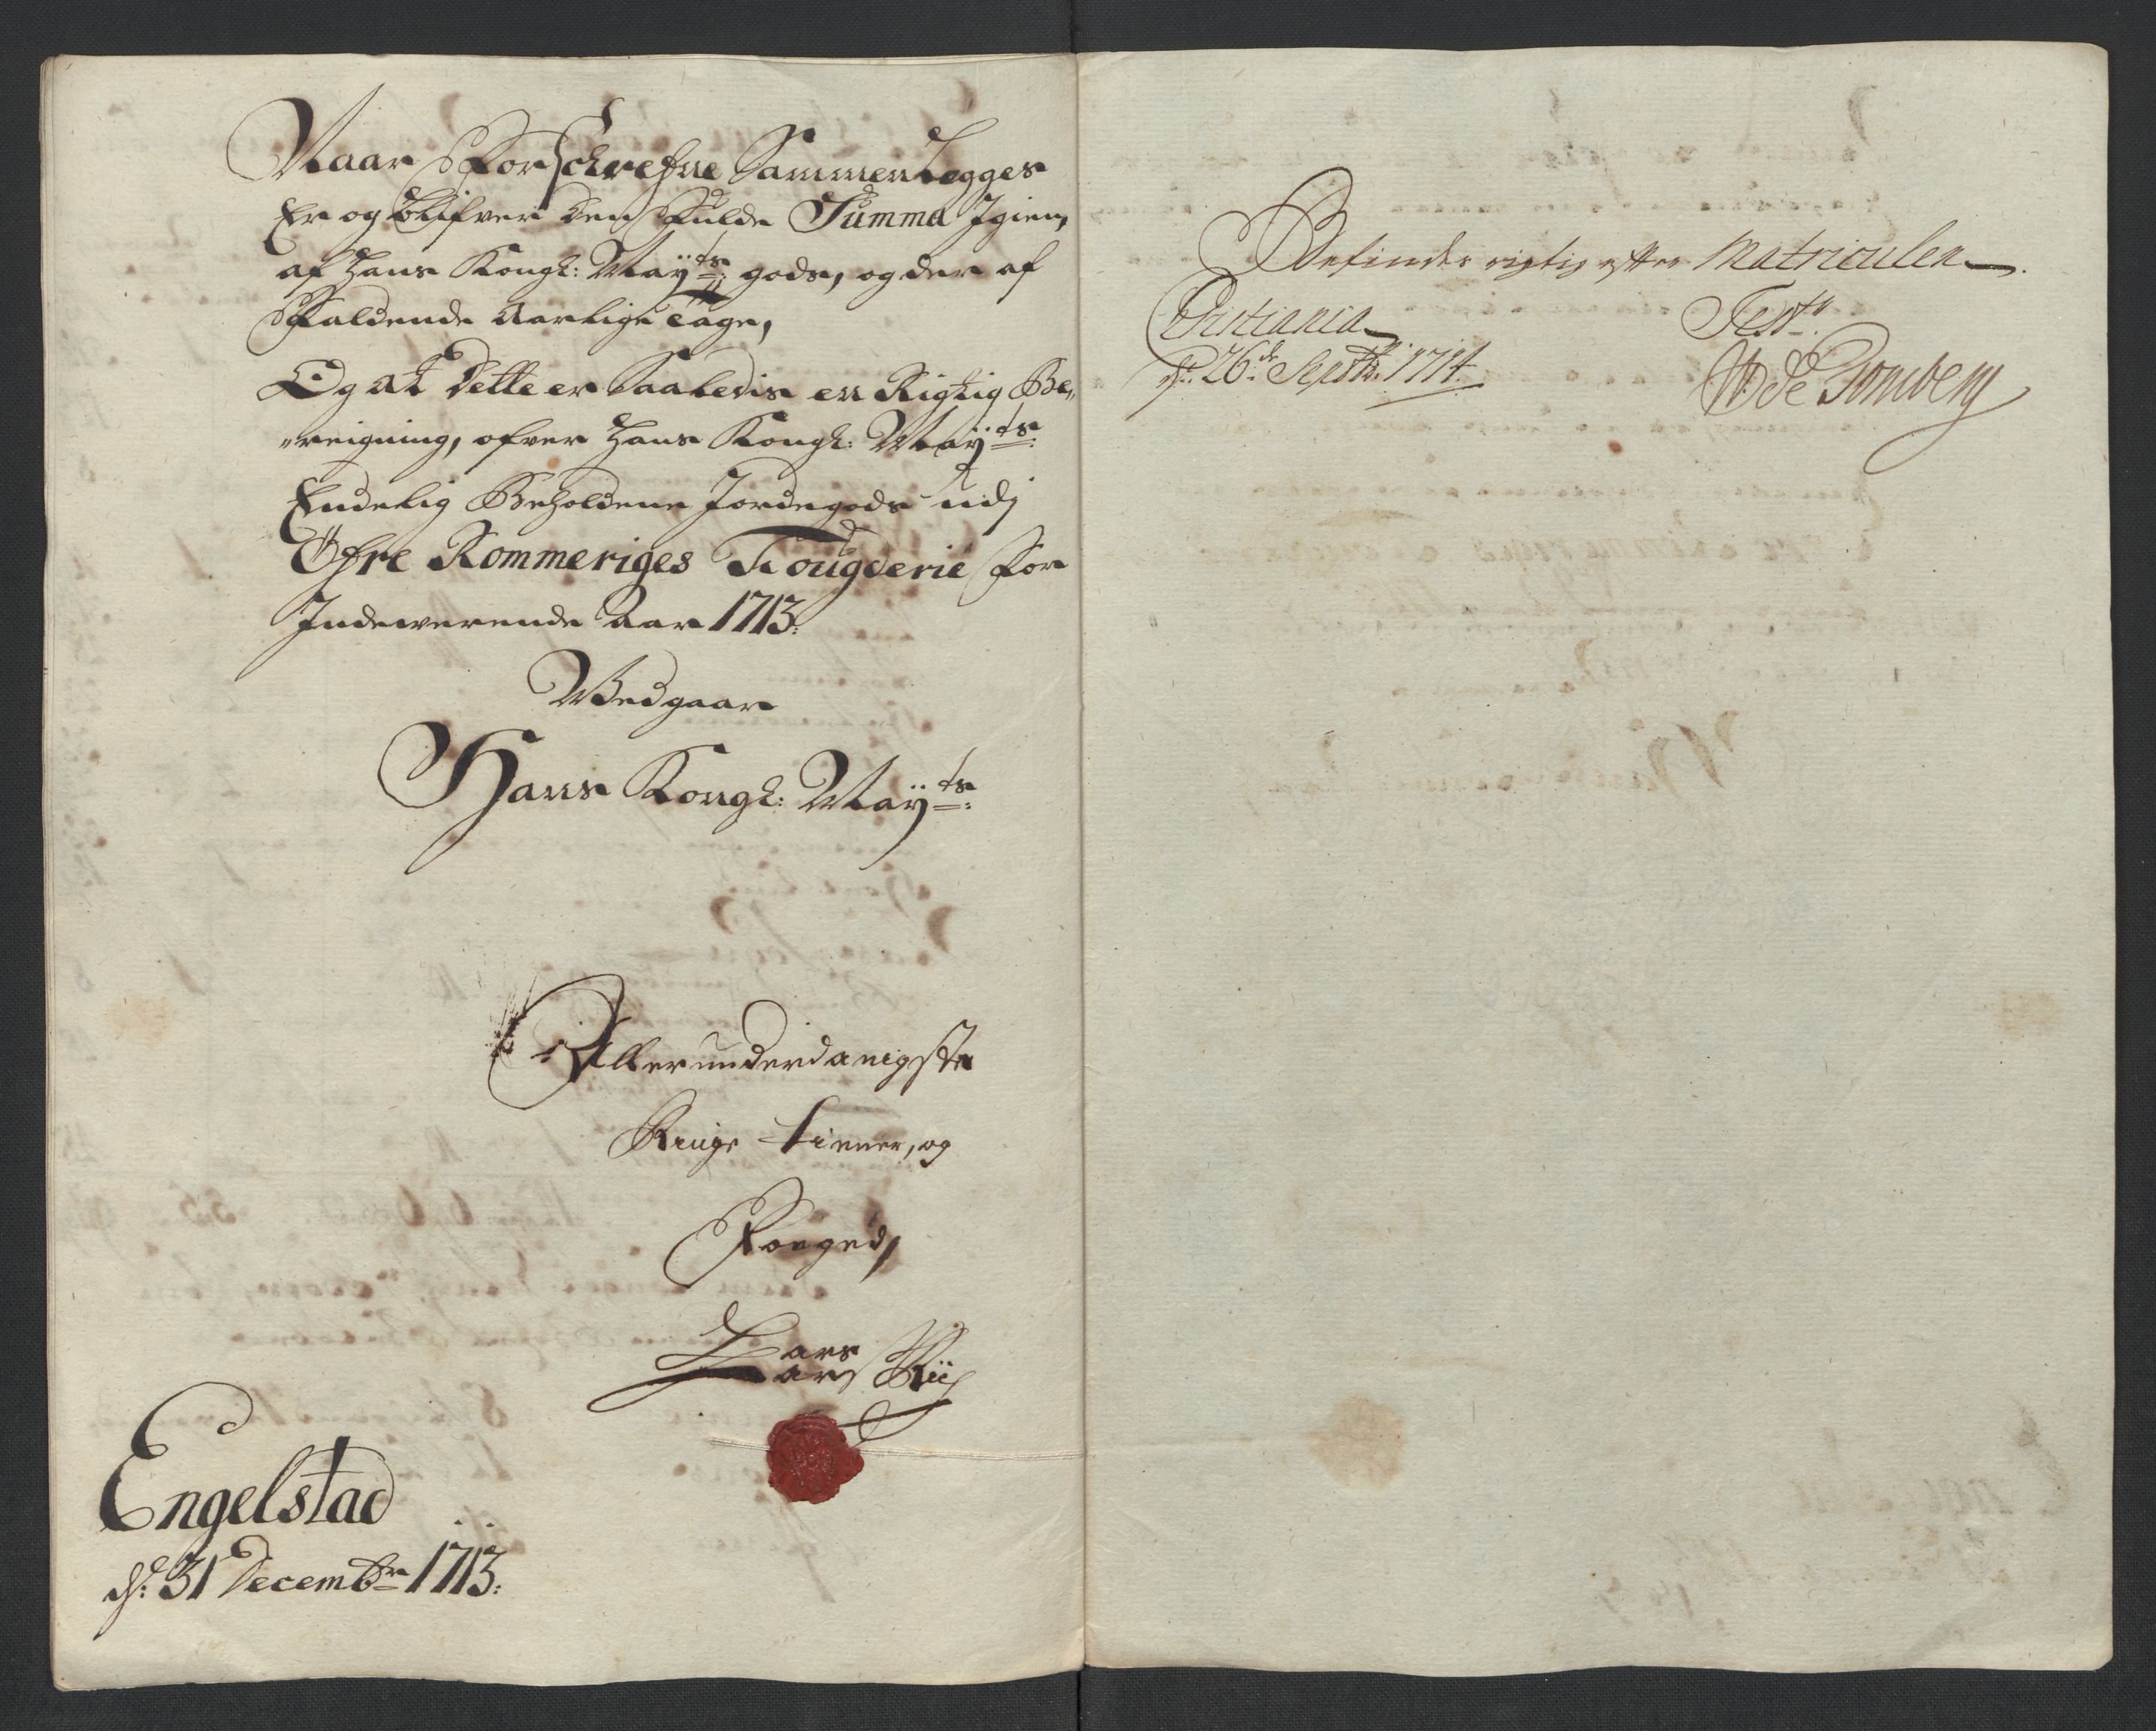 Naar Forschrefne Sammenlegges
Er og Blifver den Fulde Summa Igien,
af Hans Kongl: Mayts: gods, og der af
Faldende Aarlige Tage,
Og at Dette er Saaledis en Rigtig Be„
„reigning, ofver Hans Kongl: Mayts:
Endelig Beholdene Jordegods udj
Öfre Rommeriges Fougderie for
Indewerende Aar 1713:
Wedgaar
Hans Kongl: Mayts:
Allerunderdanigste
Ringe tiener, og
Fouged,
Lars
Engelstad
d: 31 Decembr 1713:
Befindes rigtig efter Matriculen
Cristiania
d: 26de Septbr: 1714.
Test:
de Tonsberg